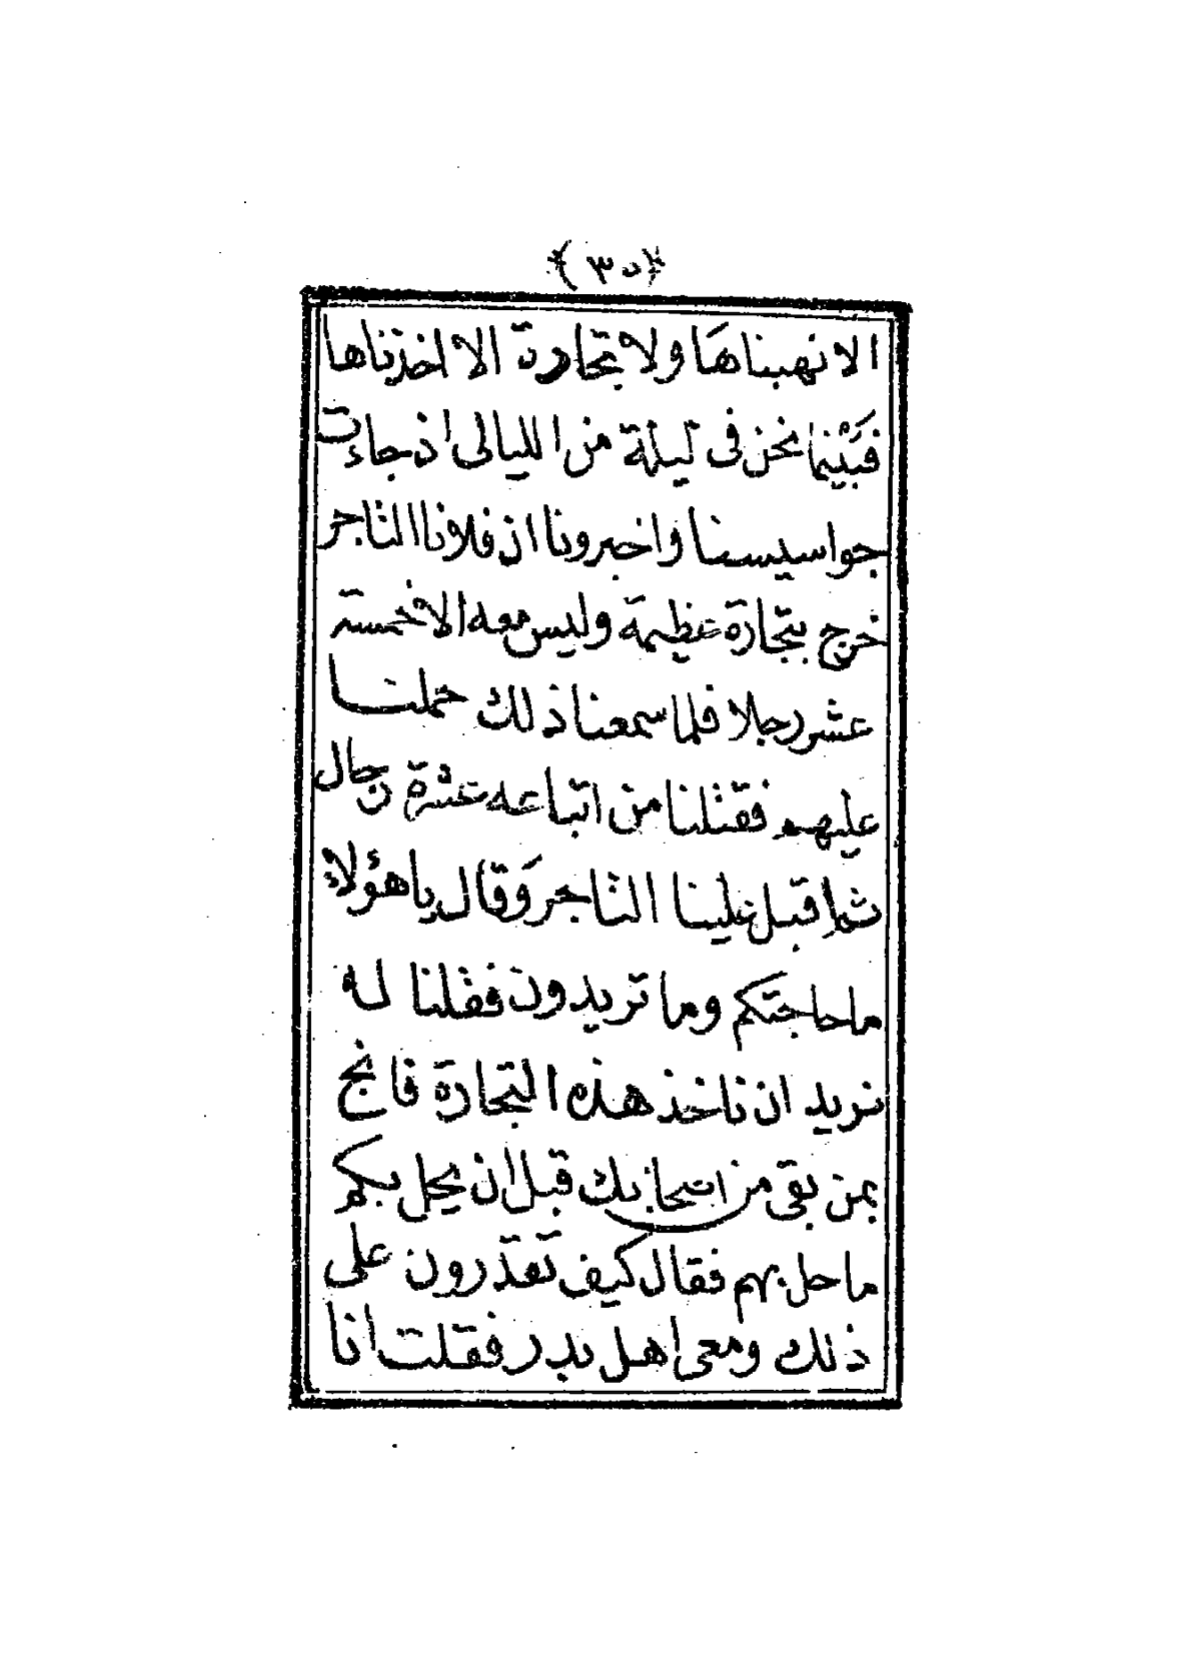 ﴿٣٥﴾
الا نهبناها ولا تجارة الا اخذناها
فبينما نحن فى ليلة من الليالى اذ جاءت
جواسيسنا واخبرونا ان فلانا التاجر
خرج بتجارة عظيمة وليس معه الا خمسة
عشر رجلا فلما سمعنا ذلك حملنا
عليهم فقتلنا من اتباعه عشرة رجال
ثم اقبل علينا التاجر وقال يا هؤلاء
ما حاجتكم وما تريدون فقلنا له
نريد ان ناخذ هذه التجارة فانج
بمن بقى من اصحابك قبل ان يحل بكم
ما حل بهم فقال كيف تقدرون على
ذلك ومعى اهل بدر فقلت انا